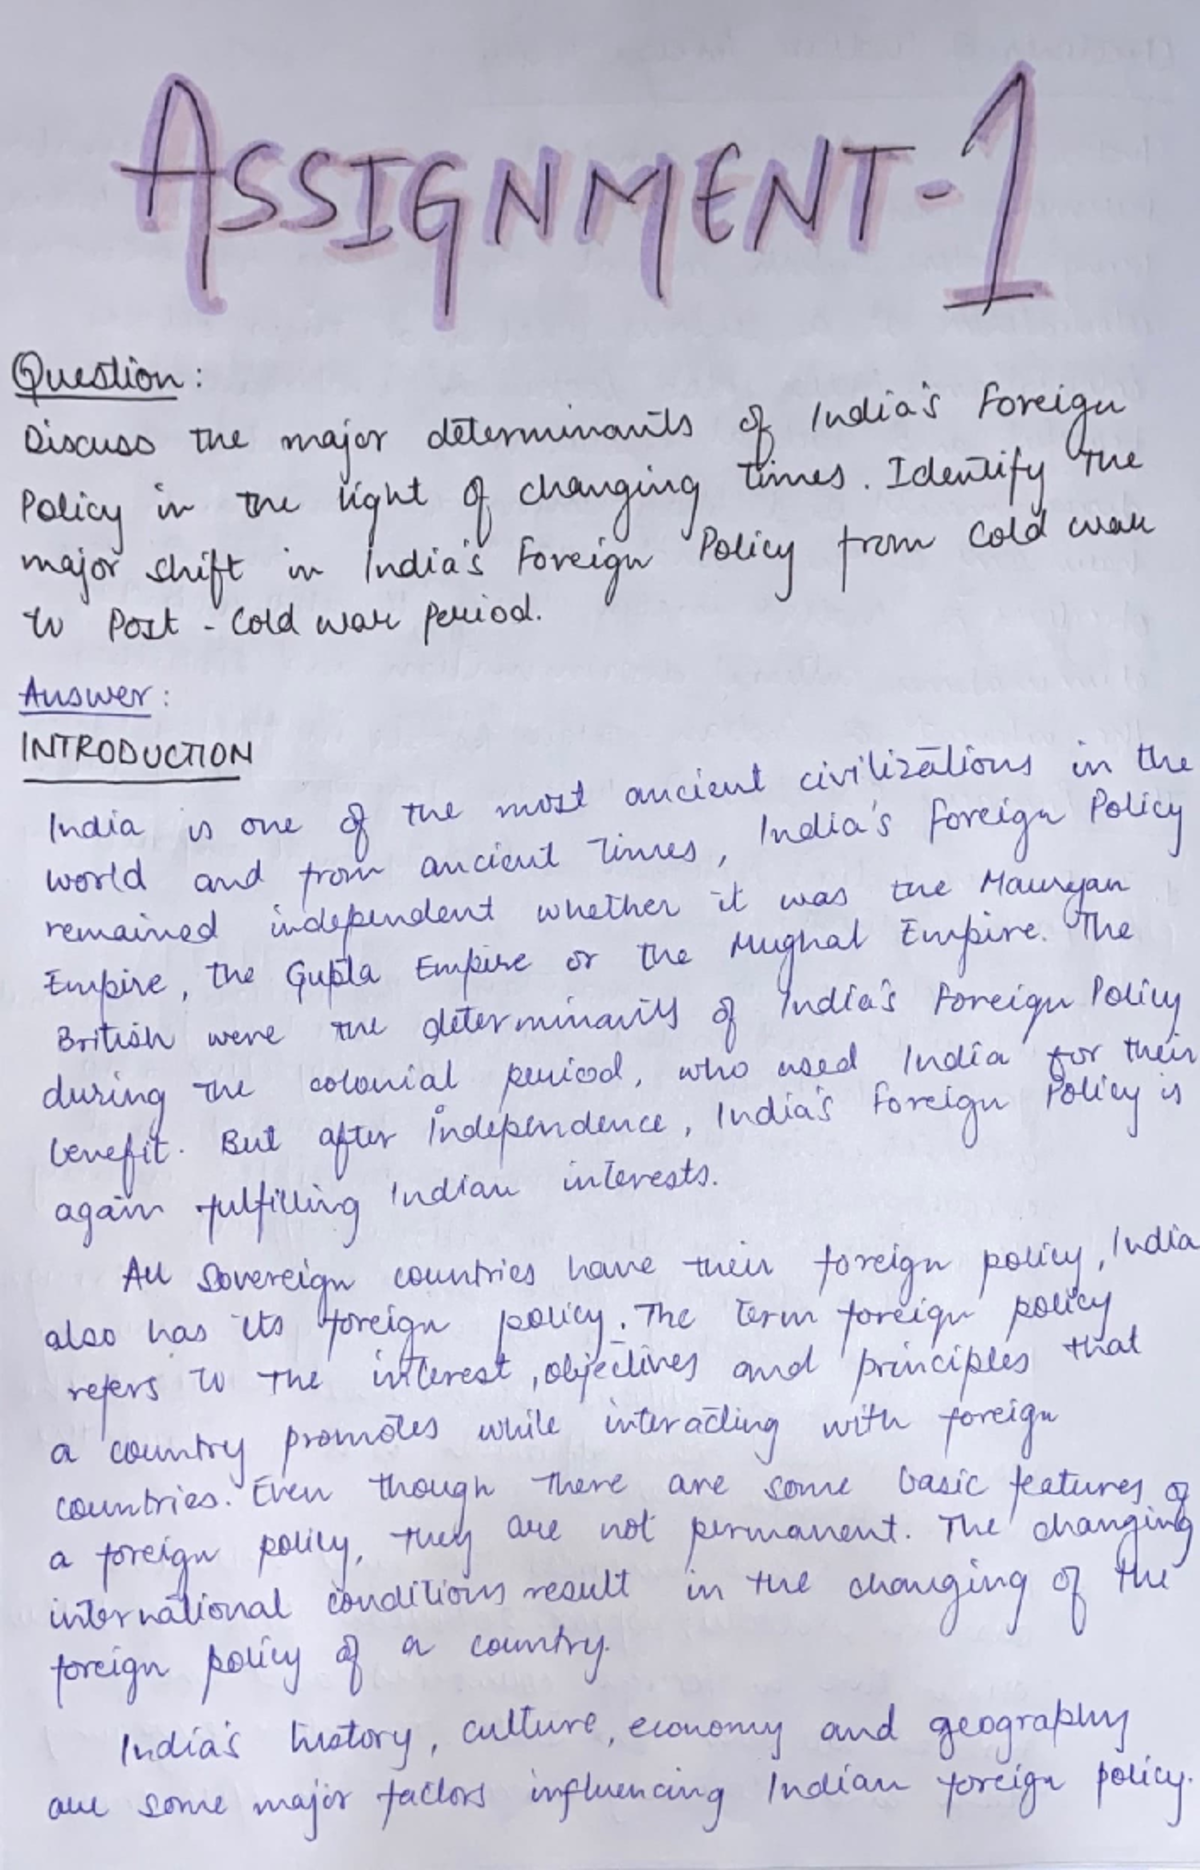 ASSIGNMENT-1
Question:
Discuss the major determinants of India's Foreign
Policy in the light of changing times. Identify the
major shift in India's Foreign Policy from Cold war
to Post-Cold war period.
Answer:
INTRODUCTION
India is one of the most ancient civilizations in the
world and from ancient times, India's Foreign Policy
remained independent whether it was the Mauryan
Empire, the Gupta Empire or the Mughal Empire. The
British were the determinants of India's Foreign Policy
during the colonial period, who used India for their
benefit. But after Independence, India's Foreign Policy is
again fulfilling Indian interests.
All Sovereign countries have their foreign policy, India
also has its foreign policy. The term foreign policy
refers to the interest, objectives and principles that
a country promotes while interacting with foreign
countries. Even though there are some basic features of
a foreign policy, they are not permanent. The changing
international conditions result in the changing of the
foreign policy of a country.
India's history, culture, economy and geography
are some major factors influencing Indian foreign policy.